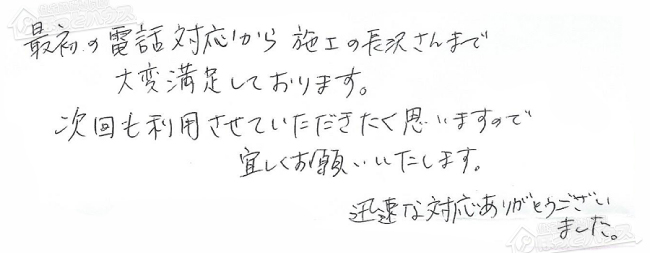 最初の電話対応から施工の長沢さんまで
大変満足しております。
次回も利用させていただきたく思いますので
宜しくお願いいたします。
迅速な対応ありがとうござい
ました。